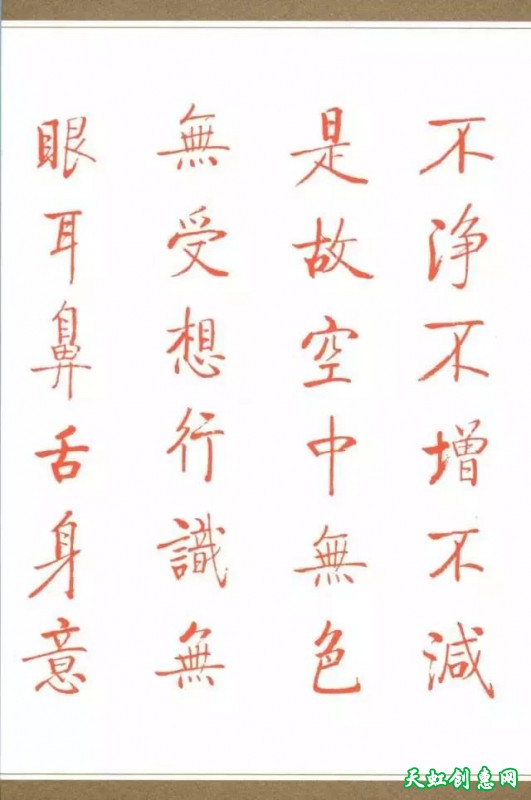 不浄不增不減
是故空中無色
無受想行識無
眼耳鼻舌身意
天虹创惠网